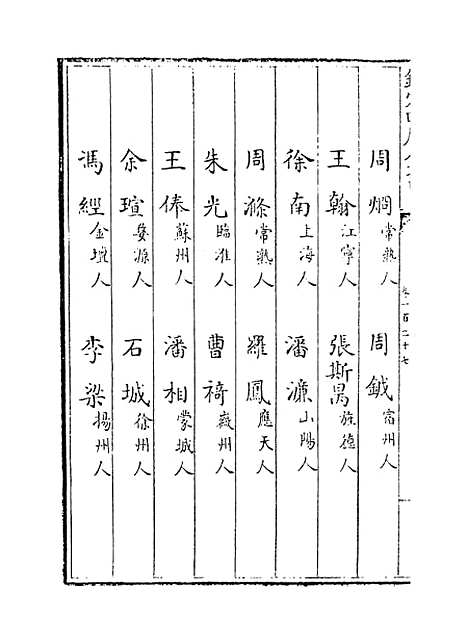 周炯常熟人 周鉞宿州人
王翰江寧人 張斯昺旌德人
徐南上海人 潘濂山陽人
周滌常熟人 羅鳳應天人
朱光臨淮人 曹𥙿徽州人
王俸蘇州人 潘相蒙城人
余瑄婺源人 石城徐州人
馮經金壇人 李梁揚州人
卷一百二十七